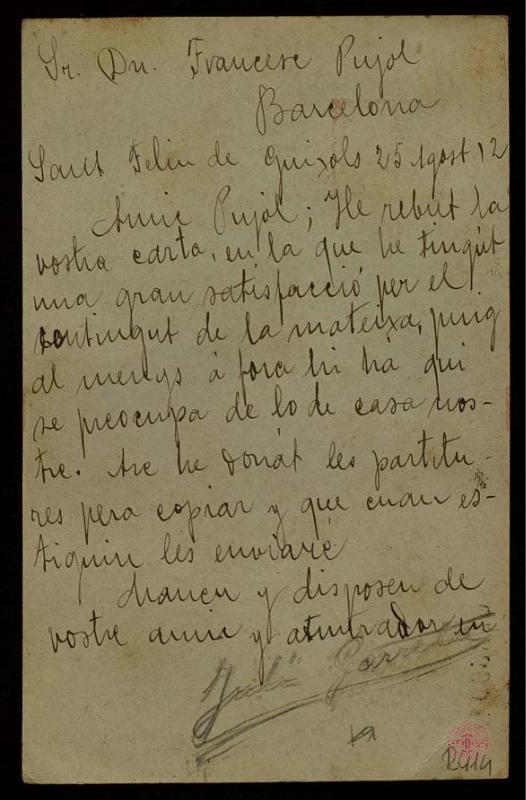 Sr. Dn. Francesc Pujol
Barcelona
Sant Feliu de Guixols 25 Agost 12
Amic Pujol; He rebut la
vostra carta, en la que he tingut
una gran satisfacció per el
contingut de la mateixa, puig
al menys á fora hi há qui
se preocupa de lo de casa nos-
tre. Are he donát les partitu-
res pera copiar y que cuan es-
tiguin les enviaré
Maneu y disposeu de
vostre amic y admirador
Juli Garreta
R414